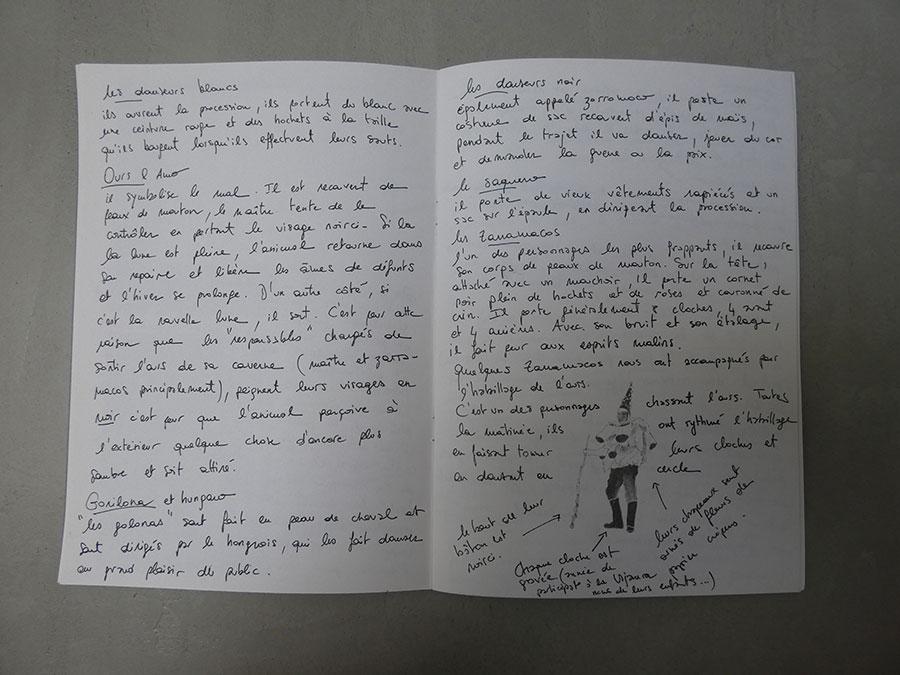 les danseurs blancs
ils ouvrent la procession, ils portent du blanc avec
une ceinture rouge et des hochets à la taille
qu'ils bougent lorsqu'ils effectuent leurs sauts.
Ours & Amo
il symbolise le mal. Il est recouvert de
peaux de mouton, le maître tente de le
contrôler en portant le visage noirci. Si la
la lune est pleine, l'animal retourne dans
sa repaire et libère les âmes de défunts
et l'hiver se prolonge. D'un autre côté, si
c'est la nouvelle lune, il sort. C'est pour cette
raison que les "responsables" chargés de
sortir l'ours de sa caverne (maître et zarra-
macos principalement), peignent leurs visages en
noir c'est pour que l'animal perçoive à
l'extérieur quelque chose d'encore plus
sombre et soit attiré.
Gorilona et hungaro
"les golonas" sont fait en peau de cheval et
sont dirigés par le hongrois, qui les fait danser
au grand plaisir du public.
les danseurs noir
également appelé zorromoco, il porte un
costume de sac recouvert d'épis de maïs,
pendant le trajet il va danser, jouer du cor
et demander la guerre ou la paix.
le saquero
il porte de vieux vêtements rapiécés et un
sac sur l'épaule, en dirigeant la procession.
les Zanamacos
l'un des personnages les plus frappants, il recouvre
son corps de peaux de mouton. Sur la tête,
attaché avec un mouchoir, il porte un cornet
noir plein de hochets et de roses et couronné de
crin. Il porte généralement 8 cloches, 4 avant
et 4 arrières. Avec son bruit et son étalage,
il fait peur aux esprits malins.
Quelques Zanamacos nous ont accompagnés par
l'habillage de l'ours.
C'est un des personnages chassant l'ours. Toutes
la matinée, ils ont rythmé l'habillage
en faisant tonner leurs cloches et
en dansant en cercle
le bout de leur
bâton est
noirci.
Chaque cloche est
gravée (année de
participat à la Vijanera
nom de leurs enfants...)
leurs chapeaux sont
ornés de fleurs de
papier crépus.